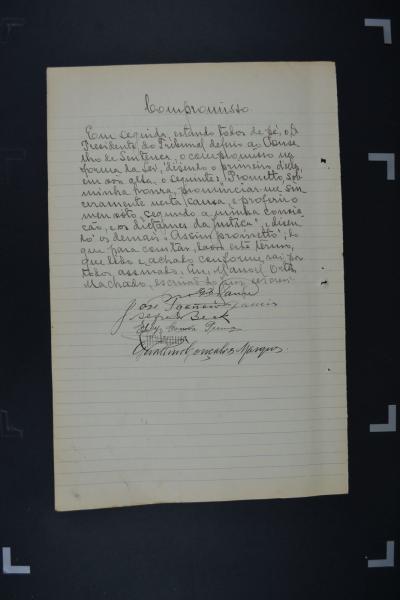 Compromisso
Em seguida, estando todos de pé, o
Presidente do Tribunal deferiu ao Conse-
lho de Sentença, o compromisso na
forma da Lei, dizendo o primeiro delles,
em voz alta, o seguinte: "Prometto, sob
minha honra, pronunciar-me sin-
ceramente nesta causa, e proferir o
meu voto, segundo a minha convic-
ção, e os dictames da justiça", e dizen-
do os demais: "Assim prometto"; do
que para constar, lavro este termo,
que lido e achado conforme, vai por
todos assignado. Eu, Manoel
Machado, escrivão do jury, escrevi.
José
Beck
Gonçalves Marques.